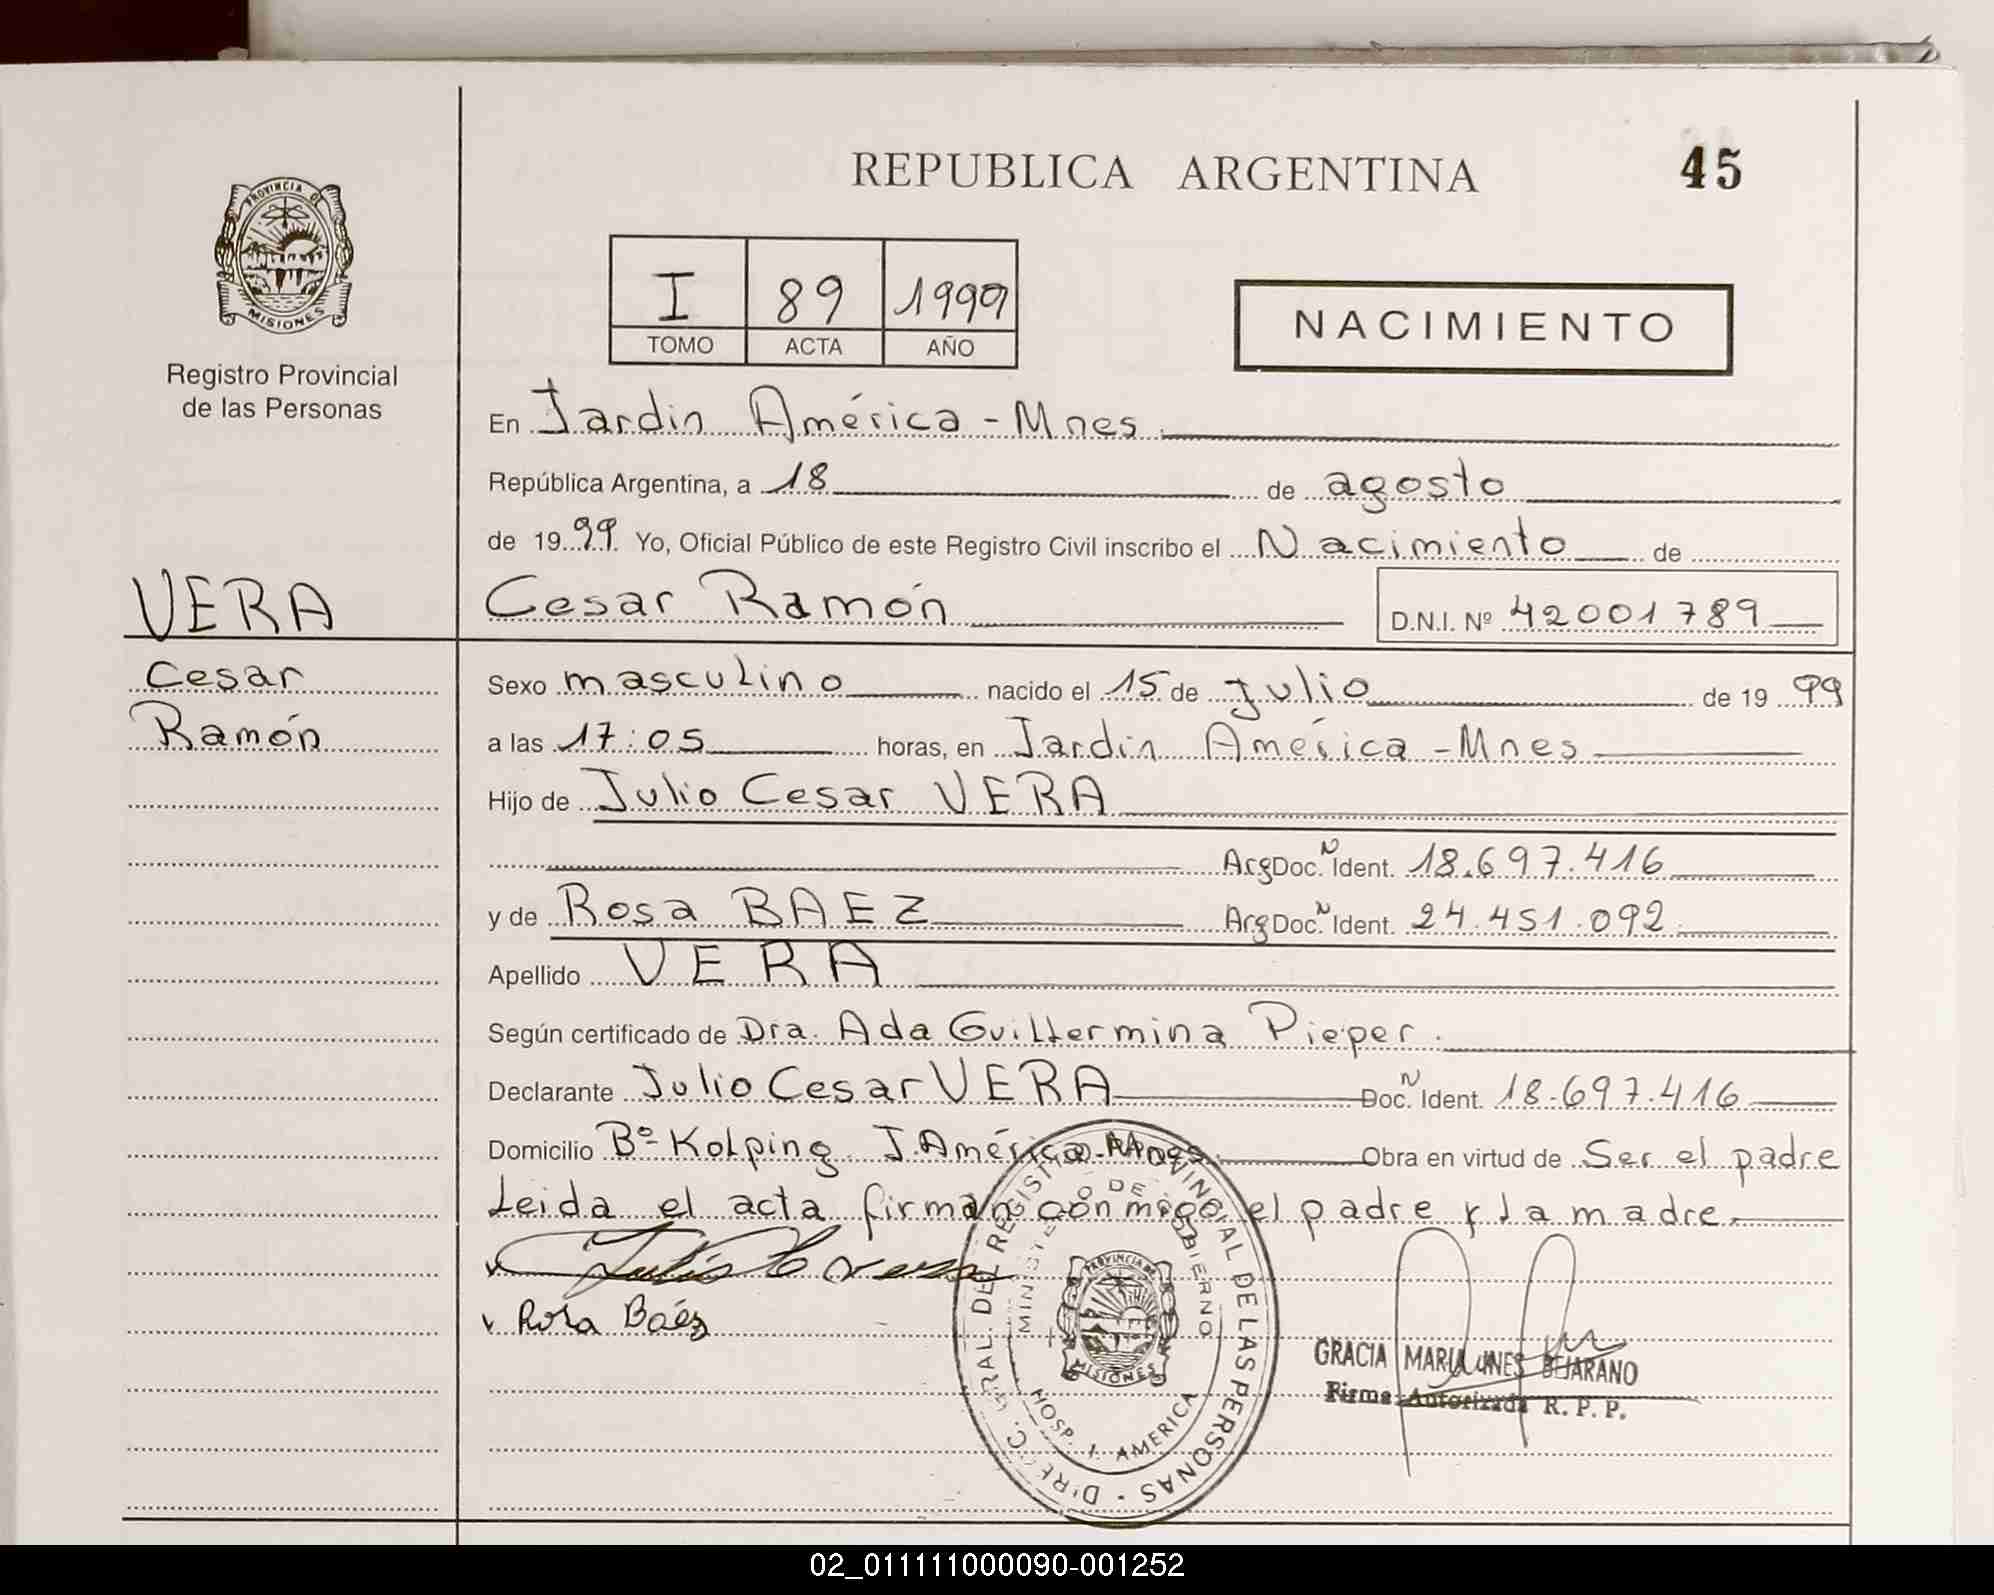 REPUBLICA ARGENTINA
45
PROVINCIA DE
MISIONES
Registro Provincial
de las Personas
I 89 1999
TOMO ACTA AÑO
NACIMIENTO
En Jardin América - Mnes.
República Argentina, a 18 de agosto
de 1999 Yo, Oficial Público de este Registro Civil inscribo el Nacimiento de
VERA
Cesar Ramón
D.N.I. Nº 42001789
Cesar
Ramón
Sexo masculino nacido el 15 de Julio de 1999
a las 17:05 horas, en Jardin América - Mnes
Hijo de Julio Cesar VERA
Arg Doc. N Ident. 18.697.416
y de Rosa BAEZ Arg Doc. N Ident. 24.451.092
Apellido VERA
Según certificado de Dra. Ada Guillermina Pieper.
Declarante Julio Cesar VERA Doc. N Ident. 18.697.416
Domicilio Bº Kolping J. América - Mnes. Obra en virtud de Ser el padre
Leida el acta firman conmigo el padre y la madre.
Rosa Baéz
DIREC. GRAL. DEL REGISTRO PROVINCIAL DE LAS PERSONAS
MINISTERIO DE GOBIERNO
PROVINCIA DE
MISIONES
HOSP. J. AMERICA
GRACIA MARIA INES BEJARANO
Firma Autorizada R. P. P.
02_011111000090-001252